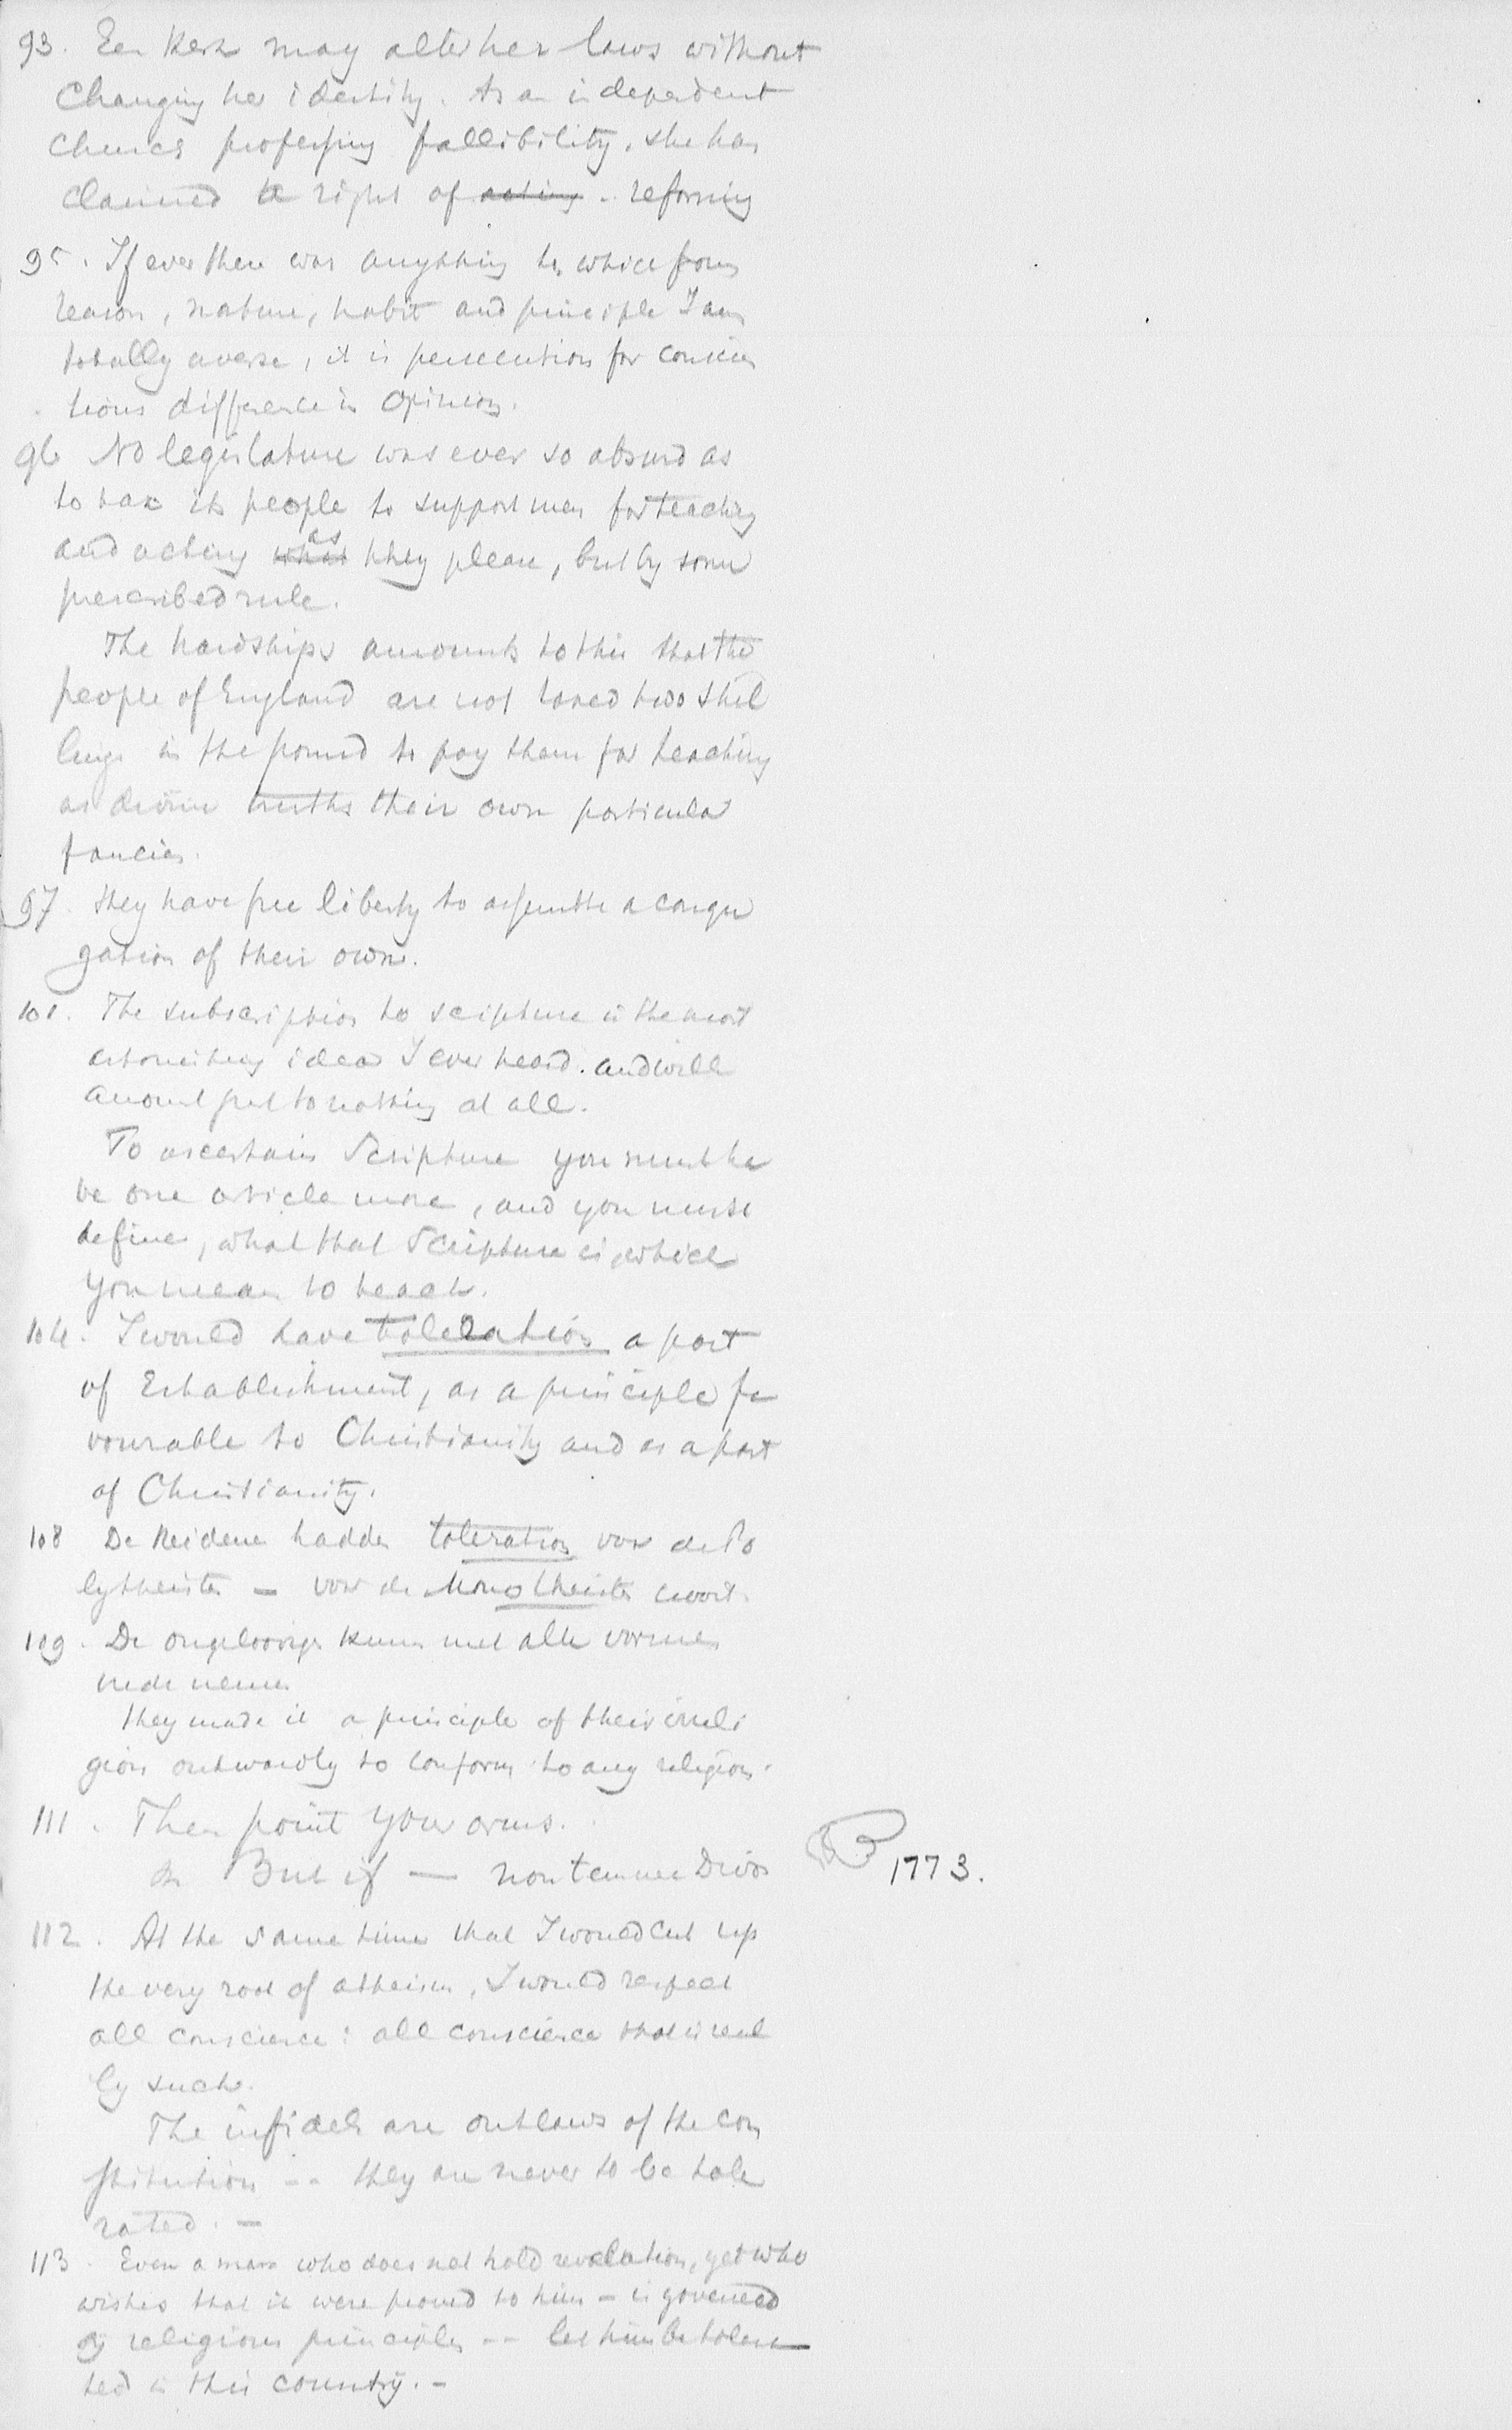 93. Een Kerk may alter her laws without
changing her identity. As an independent
church professing fallibility, she has
claimed a right of acting .. reforming
95. If ever there was anything to which from
reason, nature, habit and principle I am
totally averse, it is persecution for conscien
tious difference in opinion.
96 No legislature was ever so absurd as
to tax its people to support men for teaching
and acting what as they please, but by some
prescribed rule.
The hardships amounts to this that the
people of England are not taxed two shil
lings in the pound to pay them for teaching
as divine truths their own particular
fancies.
97. They have free liberty to assemble a congre
gation of their own.
101. The subscription to scripture is the most
astonishing idea I ever heard. and will
amount just to nothing at all.
To ascertain Scripture you must ha
ve one article more, and you must
define, what that Scripture is, which
you mean to teach.
104. I would have toleration a part
of Establishment, as a principle fa
vourable to Christianity and as a part
of Christianity.
108 De Heidenen hadden toleration voor de Po
lytheisten — voor de Monotheisten nooit.
109. De ongeloovigen kunnen met alle vormen
mede nemen
They made it a principle of their irreli
gion outwardly to conform to any religion.
111. Then point your arms.
But if — non temnere Divos
1773.
112. At the same time that I would cut up
the very root of atheism, I would respect
all conscience: all conscience that is real
ly such.
The infidels are outlaws of the con
stitution -- they are never to be tole
rated. —
113. Even a man who does not hold revelation, yet who
wishes that it were proved to him — is governed
by religious principles -- let him be tolera
ted in this country. -